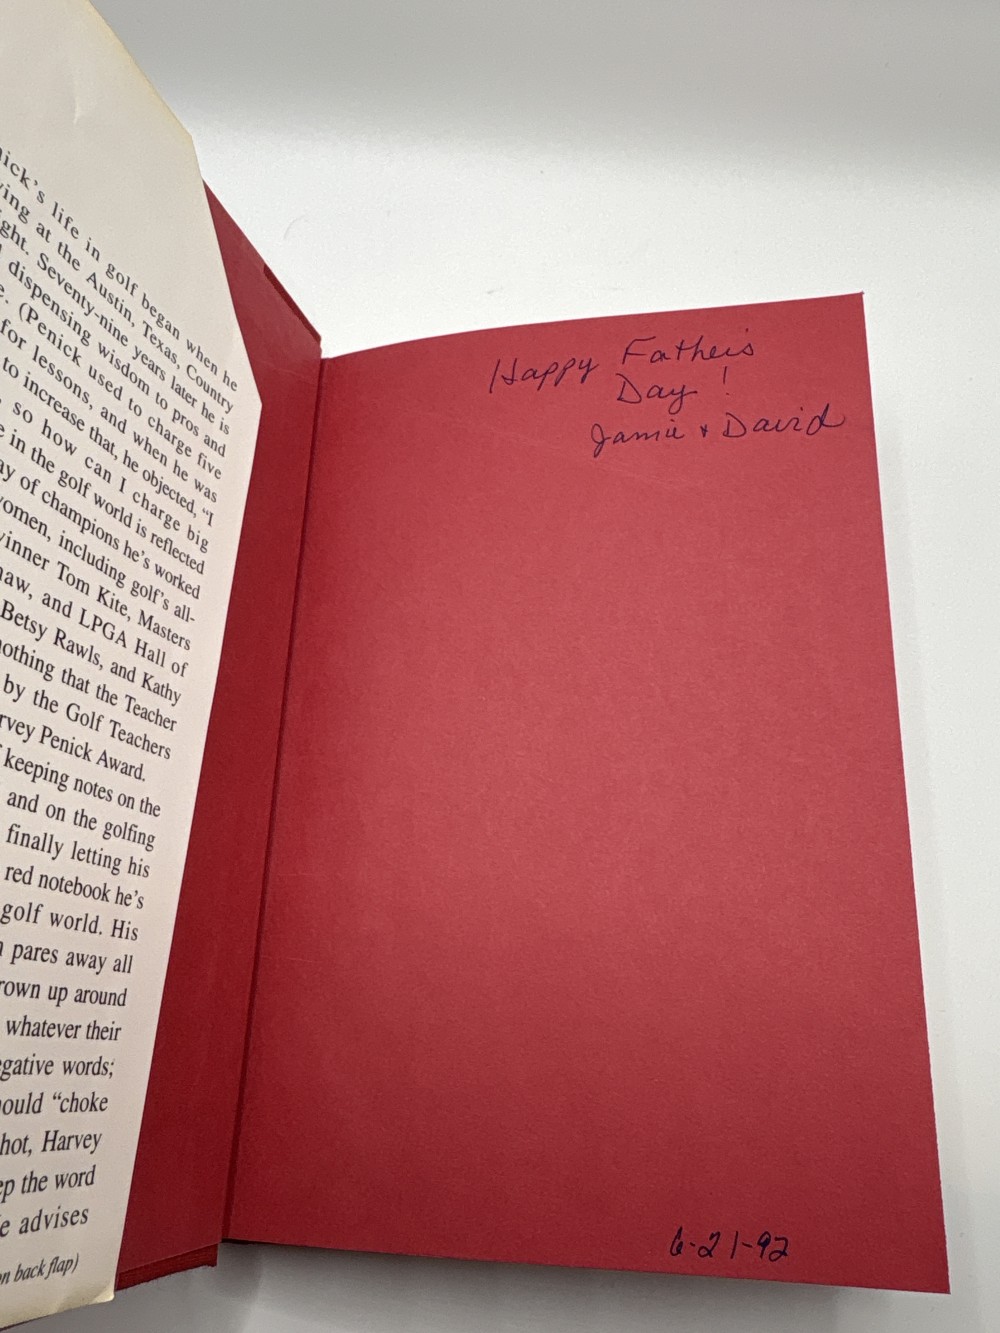 ick's life in golf began when he
ing at the Austin, Texas, Country
ght. Seventy-nine years later he is
dispensing wisdom to pros and
e. (Penick used to charge five
for lessons, and when he was
to increase that, he objected, "I
so how can I charge big
e in the golf world is reflected
ay of champions he's worked
omen, including golf's all-
inner Tom Kite, Masters
aw, and LPGA Hall of
Betsy Rawls, and Kathy
othing that the Teacher
by the Golf Teachers
rvey Penick Award.
keeping notes on the
and on the golfing
finally letting his
red notebook he's
golf world. His
pares away all
rown up around
whatever their
gative words;
ould "choke
hot, Harvey
ep the word
e advises
on back flap)
Happy Father's
Day!
Jamie + David
6-21-92